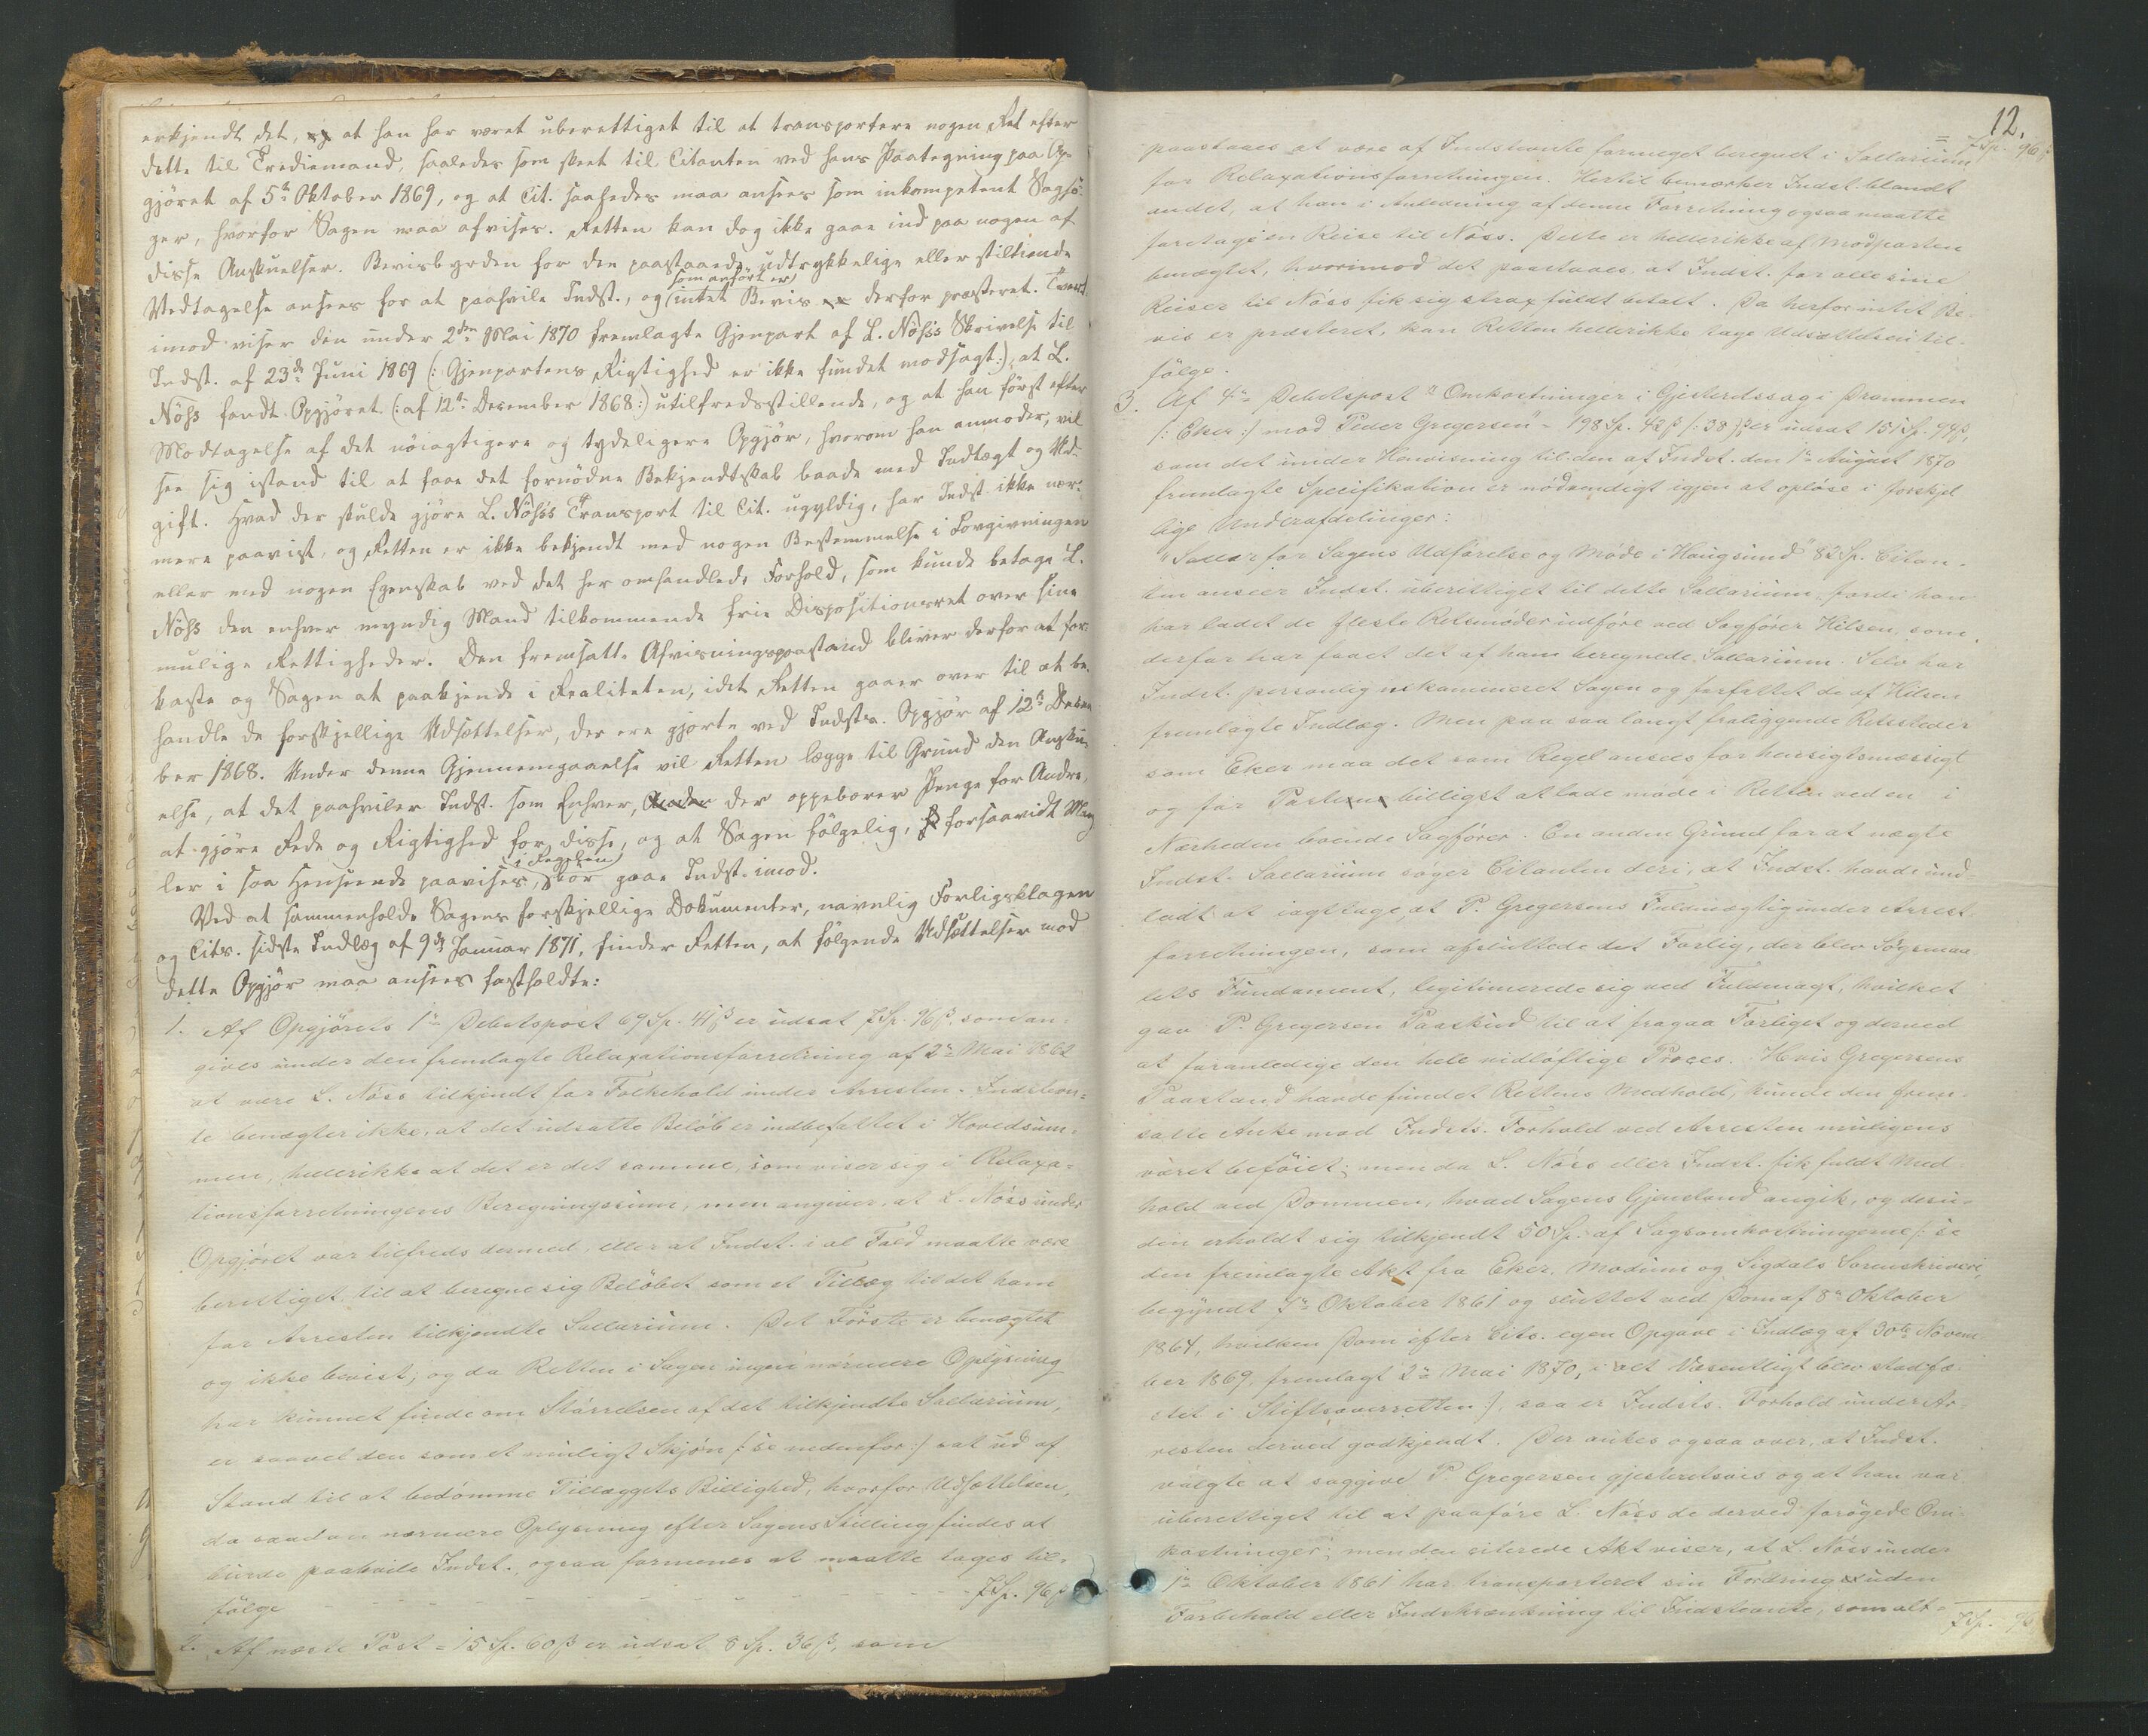 erkjendt det, at han har været uberettiget til at transportere nogen Ret efter
dette til Trediemand, saaledes som skeet til Citanten ved hans Paategning paa Op-
gjöret af 5te Oktober 1869, og at Cit. saaledes maa ansees som inkompetent Sagsö-
ger, hvorfor Sagen maa afvises. Retten kan dog ikke gaae ind paa nogen af
disse Anskuelser. Bevisbyrden for den paastaaede udtrykkelige eller stiltiende
Vedtagelse ansees for at paahvile Indst., og (som anfört er) intet Bevis derfor præsteret. Tvert-
imod viser den under 2den Mai 1870 fremlagte Gjenpart af L. Nöss's Skrivelse til
Indst. af 23de Juni 1869 (: Gjenpartens Rigtighed er ikke fundet modsagt:), at L.
Nöss fandt Opgjöret (: af 12te December 1868:) utilfredsstillende, og at han först efter
Modtagelse af det nöiagtigere og tydeligere Opgjör, hvorom han anmoder, vil
see sig istand til at faae det fornödne Bekjendtskab baade med Indtægt og Ud-
gift. Hvad der skulde gjöre L. Nöss's Transport til Cit. ugyldig, har Indst. ikke nær-
mere paavist, og Retten er ikke bekjendt med nogen Bestemmelse i Lovgivningen
eller med nogen Egenskab ved det her omhandlede Forhold, som kunde betage L.
Nöss den enhver myndig Mand tilkommende frie Dispositionsret over sine
mulige Rettigheder. Den fremsatte Afvisningspaastand bliver derfor at for-
kaste og Sagen at paakjende i Realiteten, idet Retten gaaer over til at be-
handle de forskjellige Udsættelser, der ere gjorte ved Indsts. Opgjör af 12te Decem-
ber 1868. Under denne Gjennemgaaelse vil Retten lægge til Grund den Ansku-
else, at det paahviler Indst. som Enhver, der oppebærer Penge for Andre,
at gjöre Rede og Rigtighed for disse, og at Sagen fölgelig, forsaavidt Mang-
ler i saa Henseende paavises, (i Regelen) bör gaae Indst. imod.
Ved at sammenholde Sagens forskjellige Dokumenter, navnlig Forligsklagen
og Cits. sidste Indlæg af 9de Januar 1871, finder Retten, at fölgende Udsættelser mod
dette Opgjör maa ansees fastholdte:
1. Af Opgjörets 1ste Debetspost 69 Sp. 41 ß er udsat 7 Sp. 96 ß, som an-
gives under den fremlagte Relaxationsforretning af 2den Mai 1862
at være L. Nöss tilkjendt for Folkehold under Arresten. Indstevn-
te benægter ikke, at det udsatte Belöb er indbefattet i Hovedsum-
men, hellerikke at det er det samme, som viser sig i Relaxa-
tionsforretningens Beregningssum, men angiver, at L. Nöss under
Opgjöret var tilfreds dermed, eller at Indst. i al Fald maatte være
berettiget til at beregne sig Belöbet som et Tillæg til det ham
for Arresten tilkjendte Sallarium. Det Förste er benægtet
og ikke bevist; og da Retten i Sagen ingen nærmere Oplysning
har kunnet finde om Störrelsen af det tilkjendte Sallarium,
er saavel den som et muligt Skjön (: se nedenfor :) sat ud af
Stand til at bedömme Tillæggets Billighed, hvorfor Udsættelsen,
da saadan nærmere Oplysning efter Sagens Stilling findes at
burde paahvile Indst., ogsaa formenes at maatte tages til-
fölge - - - - - - - - - - 7 Sp. 96 ß
2. Af næste Post = 15 Sp. 60 ß er udsat 8 Sp. 36 ß, som
12.
= 7 Sp. 96 ß
paastaaes at være af Indstevnte formeget beregnet i Sallarium
for Relaxationsforretningen. Hertil bemærker Indst. blandt
andet, at han i Anledning af denne Forretning ogsaa maatte
foretage en Reise til Nöss. Dette er hellerikke af Modparten
benægtet, hvorimod det paastaaes, at Indst. for alle sine
Reiser til Nöss fik sig strax fuldt betalt. Da herfor intet Be-
vis er præsteret, kan Retten hellerikke tage Udsættelsen til-
fölge.
3. Af 4de Debetspost "Omkostninger i Gjesteretssag i Drammen
(: Eker :) mod Peder Gregersen" = 198 Sp. 42 ß (: 38 :) er udsat 151 Sp. 94 ß,
som det under Henvisning til den af Indst. den 1ste August 1870
fremlagte Specifikation er nödvendigt igjen at oplöse i forskjel-
lige Underafdelinger:
"Sallar for Sagens Udförelse og Möde i Haugsund" 82 Sp. Citan-
ten anseer Indst. uberettiget til dette Sallarium, fordi han
har ladet de fleste Retsmöder udföre ved Sagförer Hilsen, som
derfor har faaet det af ham beregnede Sallarium. Selv har
Indst. personlig inkamineret Sagen og forfattet de af Hilsen
fremlagte Indlæg. Men paa saa langt fraliggende Retssteder
som Eker maa det som Regel ansees for hensigtsmæssigt
og for Parten billigst at lade möde i Retten ved en i
Nærheden boende Sagförer. En anden Grund for at nægte
Indst. Sallarium söger Citanten deri, at Indst. havde und-
ladt at iagttage, at P. Gregersens Fuldmægtig under Arrest-
forretningen, som afsluttede det Forlig, der blev Sögsmaa-
lets Fundament, legitimerede sig ved Fuldmagt, hvilket
gav P. Gregersen Paaskud til at fragaa Forliget og derved
at foranledige den hele vidlöftige Proces. Hvis Gregersens
Paastand havde fundet Rettens Medhold, kunde den frem-
satte Anke mod Indsts. Forhold ved Arresten muligens
været beföiet; men da L. Nöss eller Indst. fik fuldt Med-
hold ved Dommen, hvad Sagens Gjenstand angik, og desu-
den erholdt sig tilkjendt 50 Sp. af Sagsomkostningerne (: se
den fremlagte Akt fra Eker, Modum og Sigdals Sorenskriveri,
begyndt 1ste Oktober 1861 og sluttet ved Dom af 8de Oktober
1864, hvilken Dom efter Cits. egen Opgave i Indlæg af 30te Novem-
ber 1869, fremlagt 2den Mai 1870, i alt Væsentligt blev stadfæ-
stet i Stiftsoverretten :), saa er Indsts. Forhold under Ar-
resten derved godkjendt. Der ankes ogsaa over, at Indst.
valgte at saggive P. Gregersen gjesteretsvis og at han var
uberettiget til at paaföre L. Nöss de derved forögede Om-
kostninger; men den citerede Akt viser, at L. Nöss under
1ste Oktober 1861 har transporteret sin Fordring uden
Forbehold eller Indskrænkning til Indstevnte, som alt-
7 Sp. 96